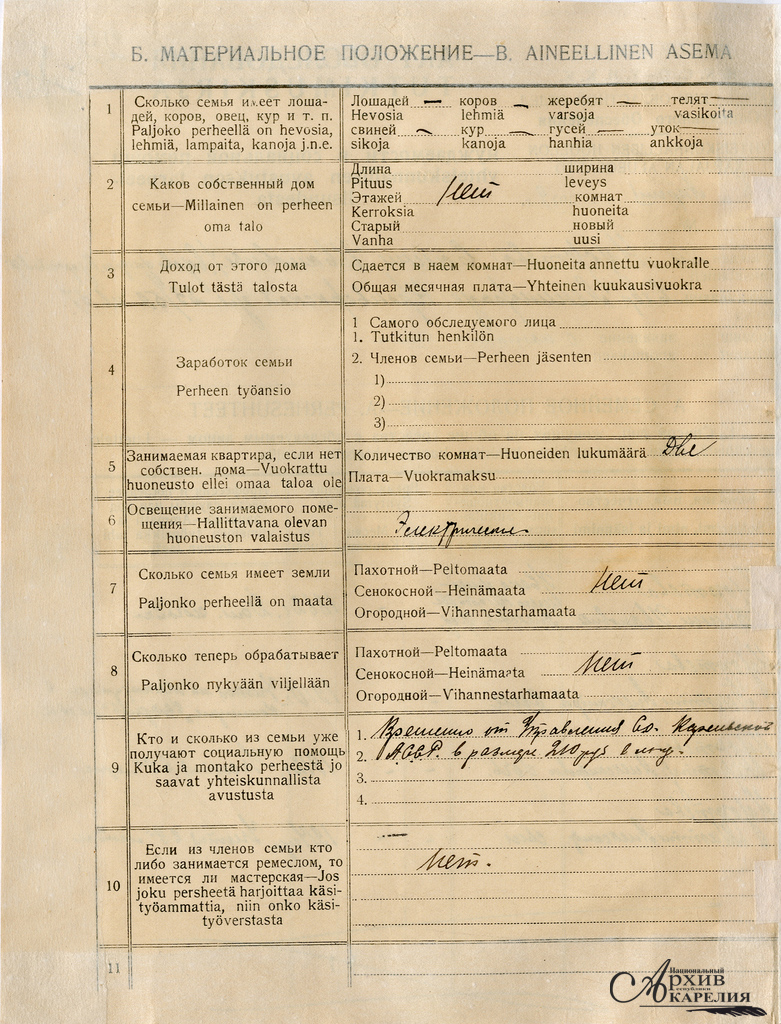 Б. МАТЕРИАЛЬНОЕ ПОЛОЖЕНИЕ—B. AINEELLINEN ASEMA
1
Сколько семья имеет лоша-
дей, коров, овец, кур и т. п.
Paljoko perheellä on hevosia,
lehmiä, lampaita, kanoja j.n.e.
Лошадей — коров — жеребят — телят —
Hevosia lehmiä varsoja vasikoita
свиней — кур — гусей — уток —
sikoja kanoja hanhia ankkoja
2
Каков собственный дом
семьи—Millainen on perheen
oma talo
Длина ширина
Pituus leveys
Нет
Этажей комнат
Kerroksia huoneita
Старый новый
Vanha uusi
3
Доход от этого дома
Tulot tästä talosta
Сдается в наем комнат—Huoneita annettu vuokralle
Общая месячная плата—Yhteinen kuukausivuokra
4
Заработок семьи
Perheen työansio
1 Самого обследуемого лица
1. Tutkitun henkilön
2. Членов семьи—Perheen jäsenten
1)
2)
3)
5
Занимаемая квартира, если нет
собствен. дома—Vuokrattu
huoneusto ellei omaa taloa ole
Количество комнат—Huoneiden lukumäärä Две
Плата—Vuokramaksu
6
Освещение занимаемого поме-
щения—Hallittavana olevan
huoneuston valaistus
7
Сколько семья имеет земли
Paljonko perheellä on maata
Пахотной—Peltomaata
Сенокосной—Heinämaata Нет
Огородной—Vihannestarhamaata
8
Сколько теперь обрабатывает
Paljonko nykyään viljellään
Пахотной—Peltomaata
Сенокосной—Heinämaata Нет
Огородной—Vihannestarhamaata
9
Кто и сколько из семьи уже
получают социальную помощь
Kuka ja montako perheestä jo
saavat yhteiskunnallista
avustusta
1. Временно от Управления Со. Карельской
2. АССР. в размере 210 руб в месц.
3.
4.
10
Если из членов семьи кто
либо занимается ремеслом, то
имеется ли мастерская—Jos
joku persheetä harjoittaa käsi-
työammattia, niin onko käsi-
työverstasta
Нет.
11
Национальный
Архив
республики
Карелия